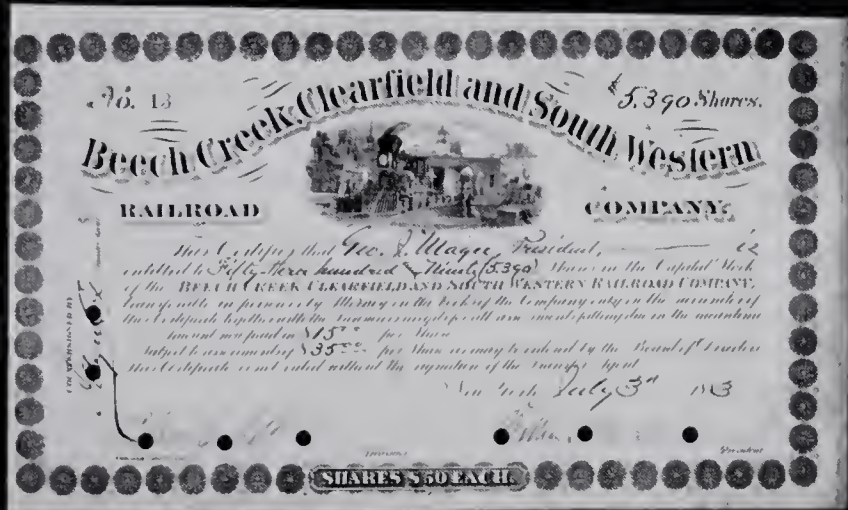 No. 13
5.390 Shares.
Beech Creek, Clearfield and South Western
RAILROAD COMPANY.
This Certifies that Geo. J. Magee, President, is
entitled to Fifty three hundred & Ninety (5.390) Shares in the Capital Stock
of the BEECH CREEK CLEARFIELD AND SOUTH WESTERN RAILROAD COMPANY,
transferable in person or by Attorney on the books of the Company only on the surrender of
this Certificate
amount now paid in $15.00 per Share
Subject to an amount of $35.00 per Share as may be ordered by the Board of Directors
this Certificate is not valid without the signature of the Transfer Agent
New York July 3rd 1883
COUNTERSIGNED BY
President
SHARES $50 EACH.